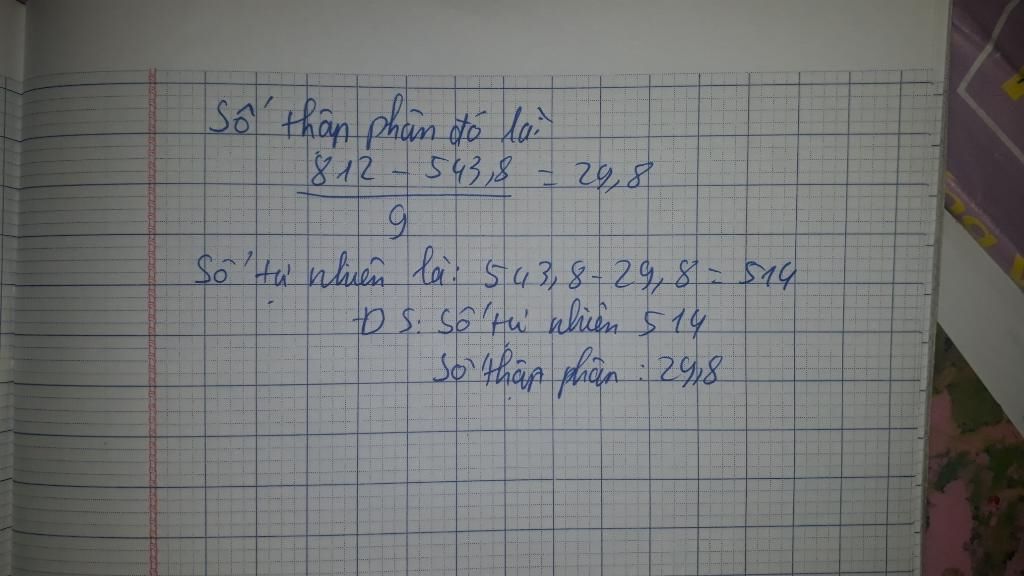 Số thập phân đó là:
812 - 543,8 = 29,8
9
Số tự nhiên là: 543,8 - 29,8 = 514
ĐS: Số tự nhiên 514
Số thập phân: 29,8